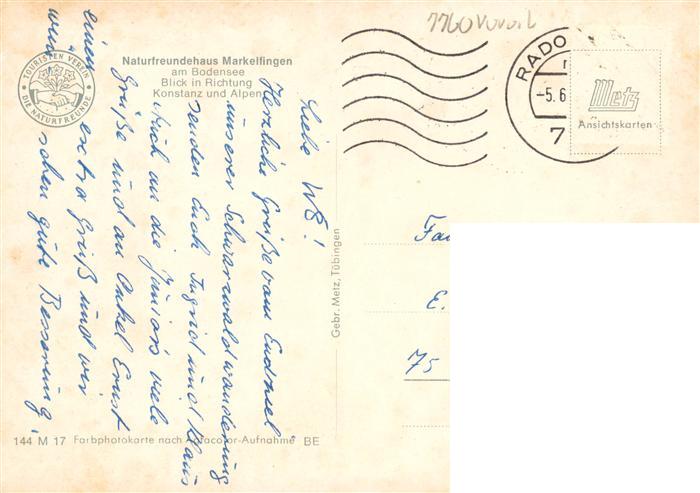 7760 Vovoil
Naturfreundehaus Markelfingen
am Bodensee
Blick in Richtung
Konstanz und Alpen
TOURISTEN VEREIN
DIE NATURFREUNDE
RADO
-5.6
7
Metz
Ansichtskarten
Liebe
Herzliche Grüße vom Endziel
unserer Schwarzwaldwanderung
senden Euch Ingrid und Klaus
Auch an die Juniors viele
Grüße und an Onkel Ernst
einen extra Gruß und wir
wünschen gute Besserung!
Gebr. Metz, Tübingen
Fa
E.
75
144 M 17 Farbphotokarte nach Agfacolor-Aufnahme BE